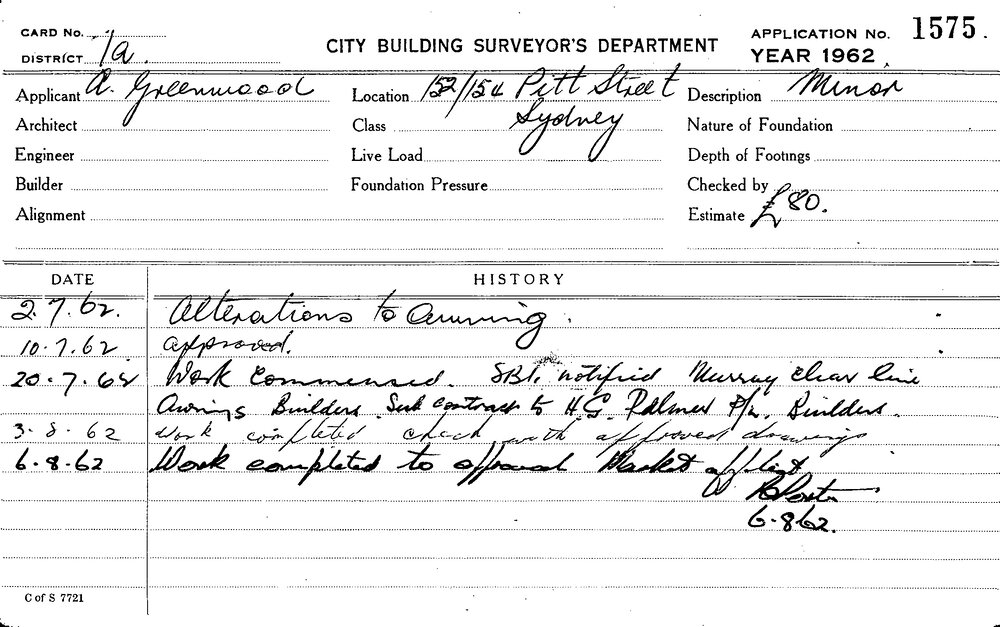 CARD No.
DISTRICT 1a.
CITY BUILDING SURVEYOR'S DEPARTMENT
APPLICATION No. 1575.
YEAR 1962.
Applicant A. Greenwood Location 152/154 Pitt Street Description Minor
Architect Class Sydney Nature of Foundation
Engineer Live Load Depth of Footings
Builder Foundation Pressure Checked by
Alignment Estimate £80.
DATE HISTORY
2.7.62. Alterations to Awning.
10.7.62. Approved.
20.7.62 Work commenced. notified Murray Clear line
Awnings Builders. Sub contract to H.G. Palmer P/L. Builders.
3.8.62 Work completed check with approved drawings
6.8.62 Work completed to approval
6.8.62.
C of S 7721